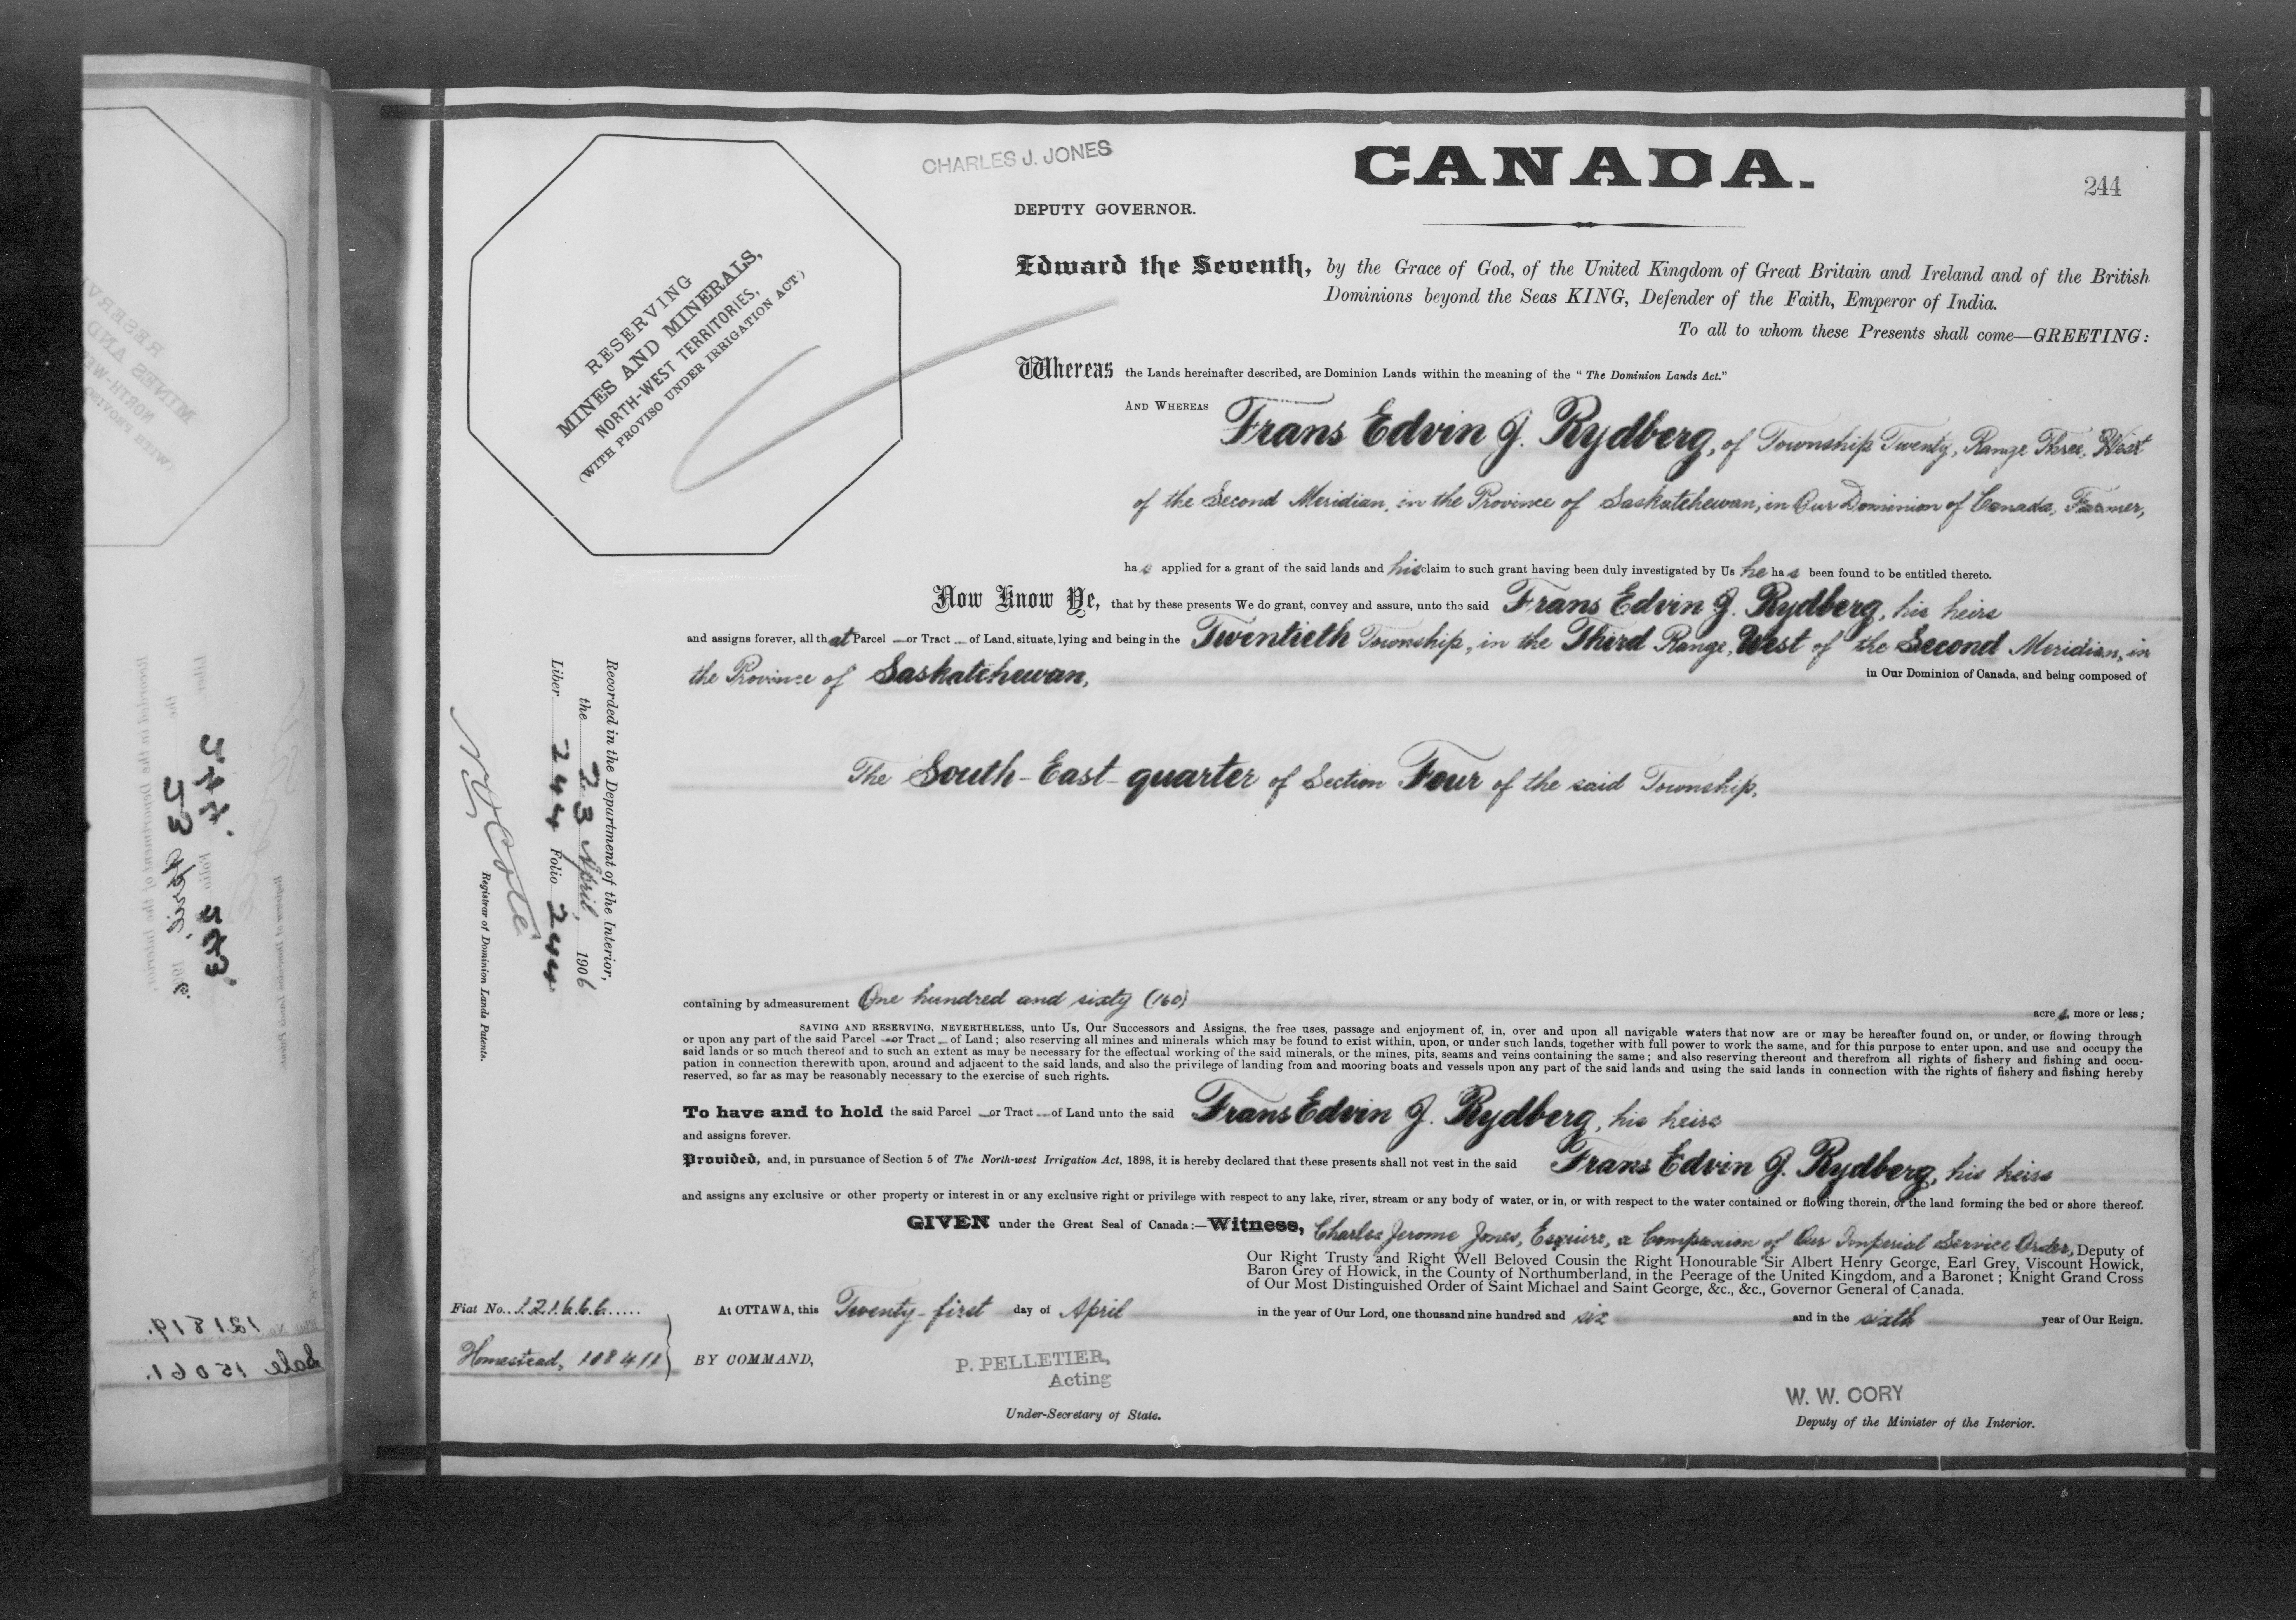 CHARLES J. JONES
CANADA.
244
DEPUTY GOVERNOR.
RESERVING
MINES AND MINERALS,
NORTH-WEST TERRITORIES,
(WITH PROVISO UNDER IRRIGATION ACT.)
Edward the Seventh, by the Grace of God, of the United Kingdom of Great Britain and Ireland and of the British
Dominions beyond the Seas KING, Defender of the Faith, Emperor of India.
To all to whom these Presents shall come—GREETING:
Whereas the Lands hereinafter described, are Dominion Lands within the meaning of the "The Dominion Lands Act."
AND WHEREAS Frans Edvin J. Rydberg, of Township Twenty, Range Three, West
of the Second Meridian, in the Province of Saskatchewan, in Our Dominion of Canada, Farmer,
has applied for a grant of the said lands and his claim to such grant having been duly investigated by Us he has been found to be entitled thereto.
Now Know Ye, that by these presents We do grant, convey and assure, unto the said Frans Edvin J. Rydberg, his heirs
and assigns forever, all that Parcel or Tract of Land, situate, lying and being in the Twentieth Township, in the Third Range, West of the Second Meridian, in
the Province of Saskatchewan, in Our Dominion of Canada, and being composed of
The South-East-quarter of Section Four of the said Township.
Recorded in the Department of the Interior,
the 23 April, 1906
Liber 244 Folio 244.
N O Coté
Registrar of Dominion Lands Patents.
containing by admeasurement One hundred and sixty (160) acres, more or less;
SAVING AND RESERVING, NEVERTHELESS, unto Us, Our Successors and Assigns, the free uses, passage and enjoyment of, in, over and upon all navigable waters that now are or may be hereafter found on, or under, or flowing through
or upon any part of the said Parcel or Tract of Land; also reserving all mines and minerals which may be found to exist within, upon, or under such lands, together with full power to work the same, and for this purpose to enter upon, and use and occupy the
said lands or so much thereof and to such an extent as may be necessary for the effectual working of the said minerals, or the mines, pits, seams and veins containing the same; and also reserving thereout and therefrom all rights of fishery and fishing and occu-
pation in connection therewith upon, around and adjacent to the said lands, and also the privilege of landing from and mooring boats and vessels upon any part of the said lands and using the said lands in connection with the rights of fishery and fishing hereby
reserved, so far as may be reasonably necessary to the exercise of such rights.
To have and to hold the said Parcel or Tract of Land unto the said Frans Edvin J. Rydberg, his heirs
and assigns forever.
Provided, and, in pursuance of Section 5 of The North-west Irrigation Act, 1898, it is hereby declared that these presents shall not vest in the said Frans Edvin J. Rydberg, his heirs
and assigns any exclusive or other property or interest in or any exclusive right or privilege with respect to any lake, river, stream or any body of water, or in, or with respect to the water contained or flowing therein, or the land forming the bed or shore thereof.
GIVEN under the Great Seal of Canada:—Witness, Charles Jerome Jones, Esquire, a Companion of Our Imperial Service Order, Deputy of
Our Right Trusty and Right Well Beloved Cousin the Right Honourable Sir Albert Henry George, Earl Grey, Viscount Howick,
Baron Grey of Howick, in the County of Northumberland, in the Peerage of the United Kingdom, and a Baronet; Knight Grand Cross
of Our Most Distinguished Order of Saint Michael and Saint George, &c., &c., Governor General of Canada.
Fiat No. 121666
At OTTAWA, this Twenty-first day of April in the year of Our Lord, one thousand nine hundred and six and in the sixth year of Our Reign.
Homestead, 108411
BY COMMAND,
P. PELLETIER,
Acting
Under-Secretary of State.
W. W. CORY
Deputy of the Minister of the Interior.